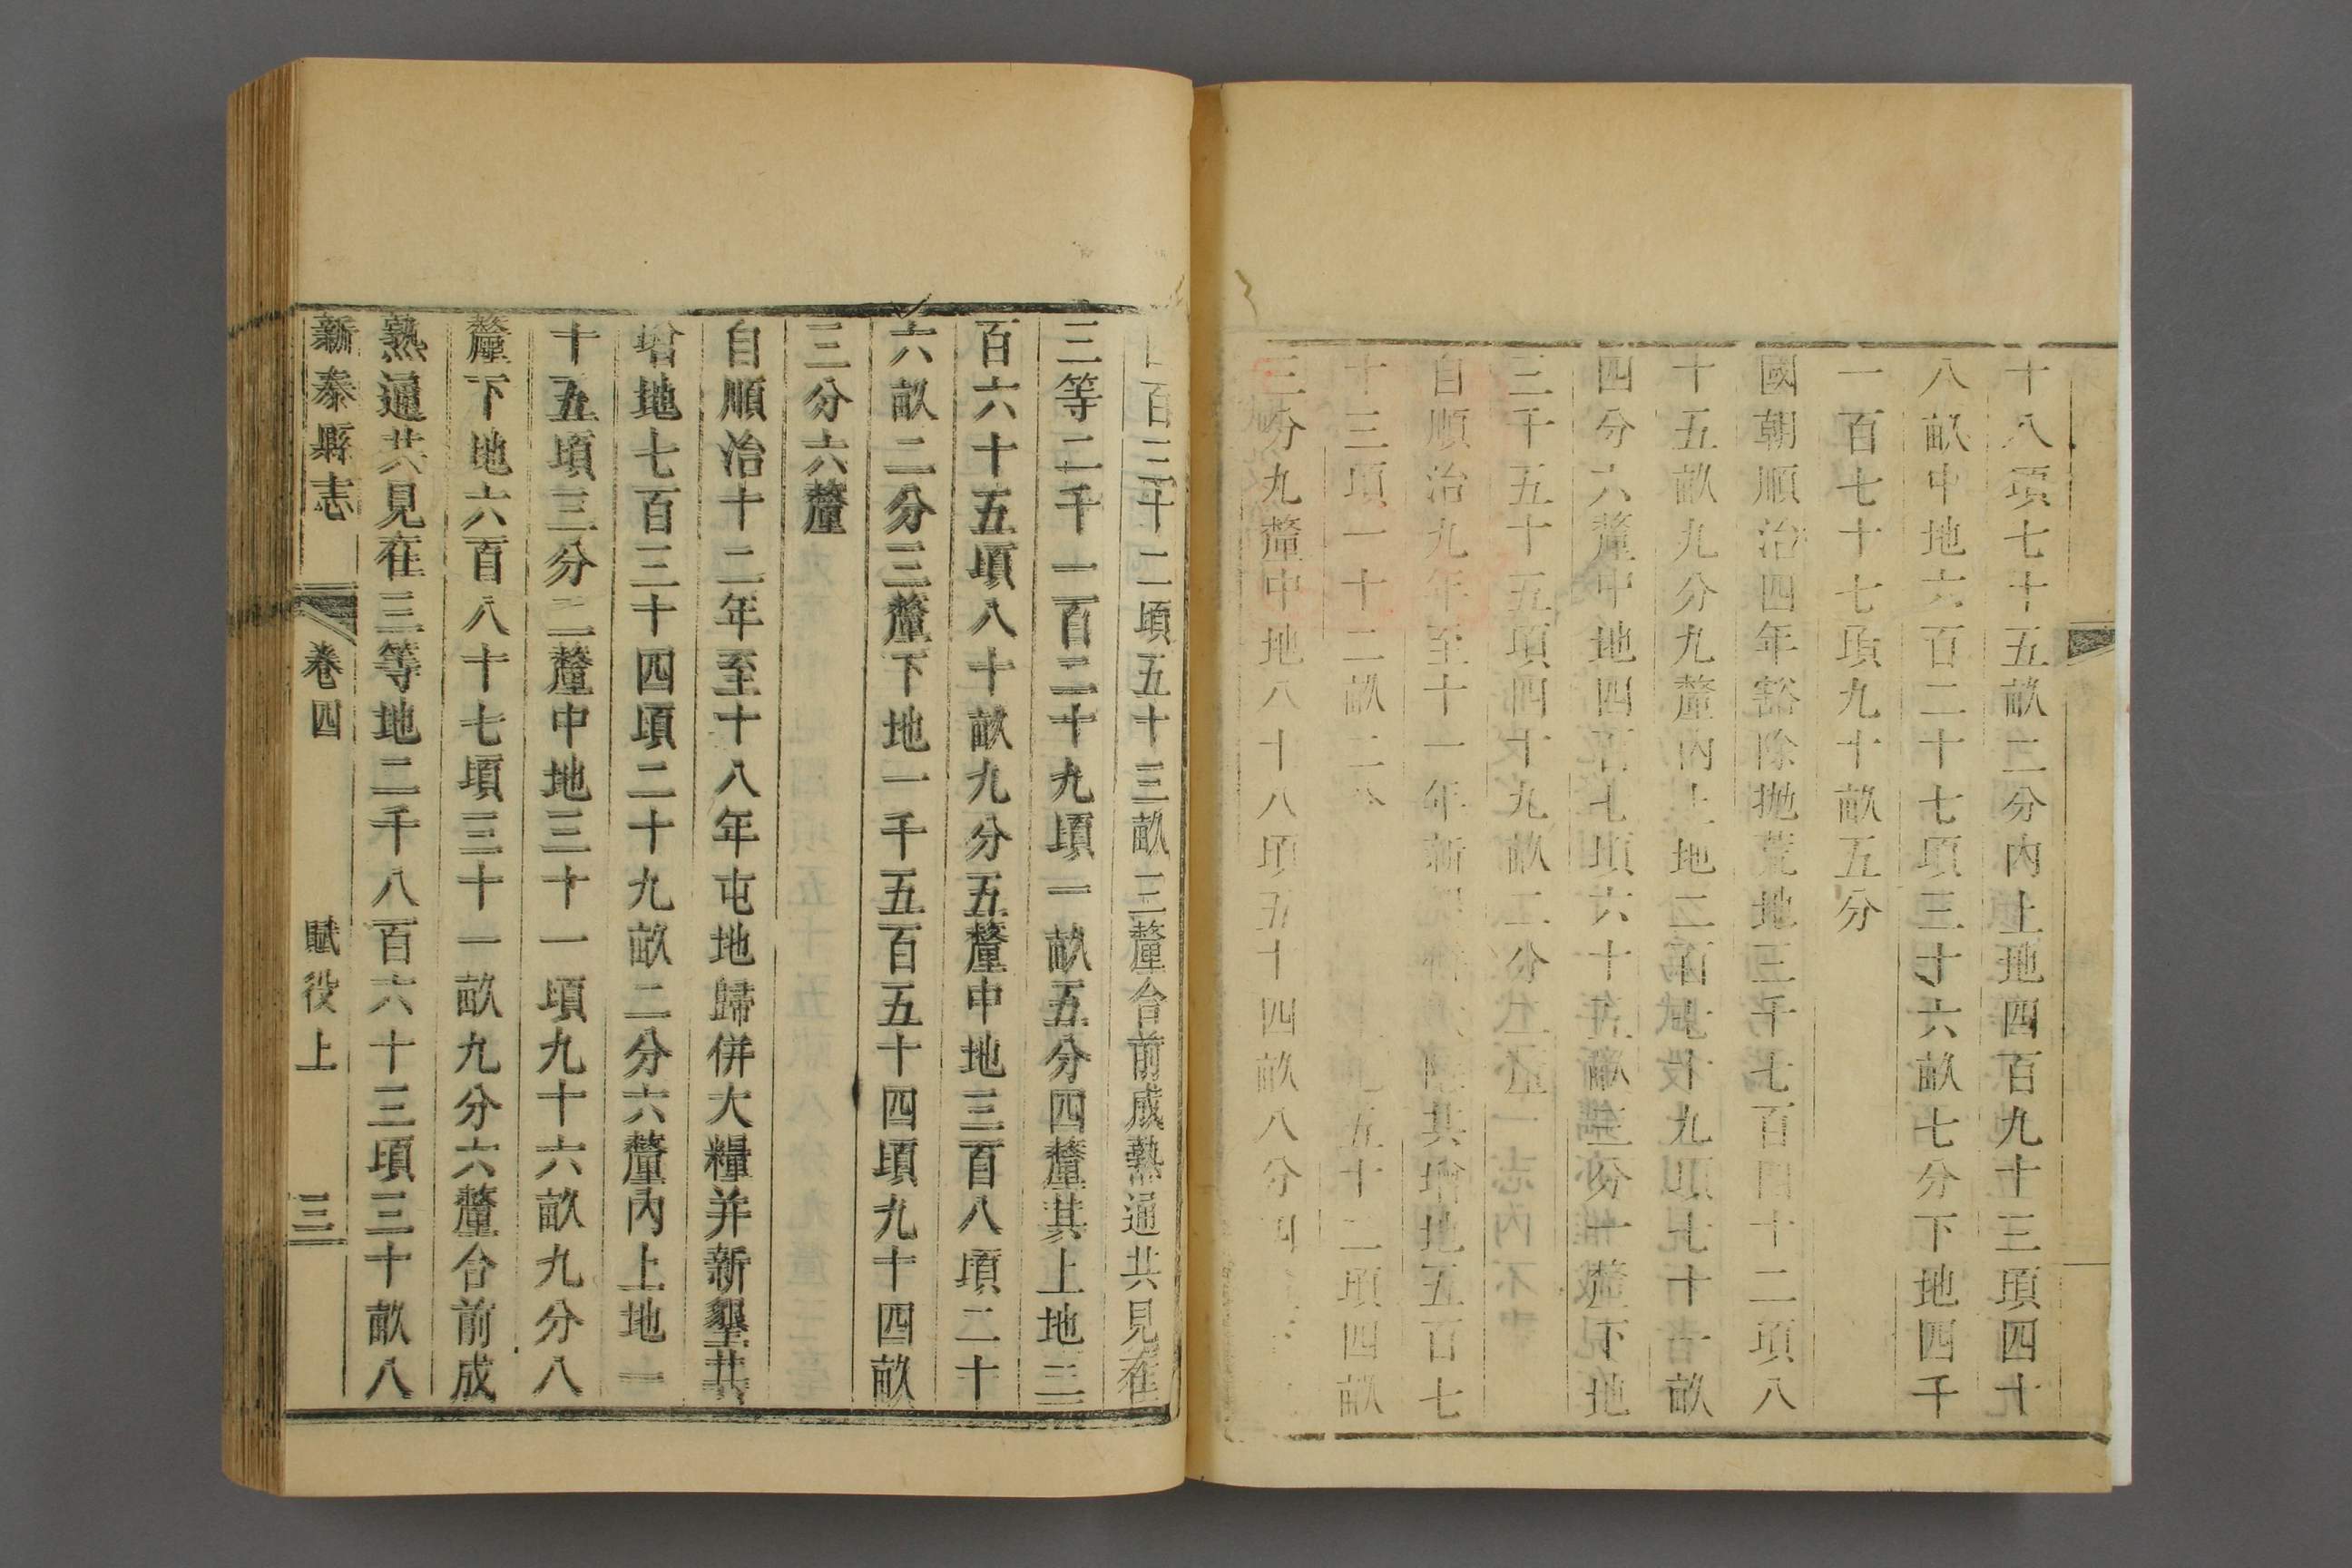 十八項七十五畝二分內上地四百九十三項四十
八畝中地六百二十七項三十六畝七分下地四千
一百七十七項九十畝五分
國朝順治四年豁除抛荒地三千七百四十二項八
十五畝九分九釐內上地二百七十九項七十一畝
四分六釐中地四百七項六十八畝三分一釐下地
三千五十五項四十九畝二分二釐
自順治九年至十一年新墾共增地五百七
十三項一十二畝二分五十二項四畝
三分九釐中地八十八項五十四畝八分四
百三十二頃五十三畝三釐合前成熟通共見在
三等二千一百二十九頃一畝五分四釐其上地二
百六十五頃八十畝九分五釐中地三百八頃二十
六畝二分三釐下地一千五百五十四頃九十四畝
三分六釐
自順治十二年至十八年屯地歸併大糧并新墾共
增地七百三十四頃二十九畝二分六釐內上地一
十五頃三分二釐中地三十一頃九十六畝九分八
釐下地六百八十七頃三十一畝九分六釐合前成
熟通共見在三等地二千八百六十三頃三十畝八
新泰縣志 卷四 賦役上 三